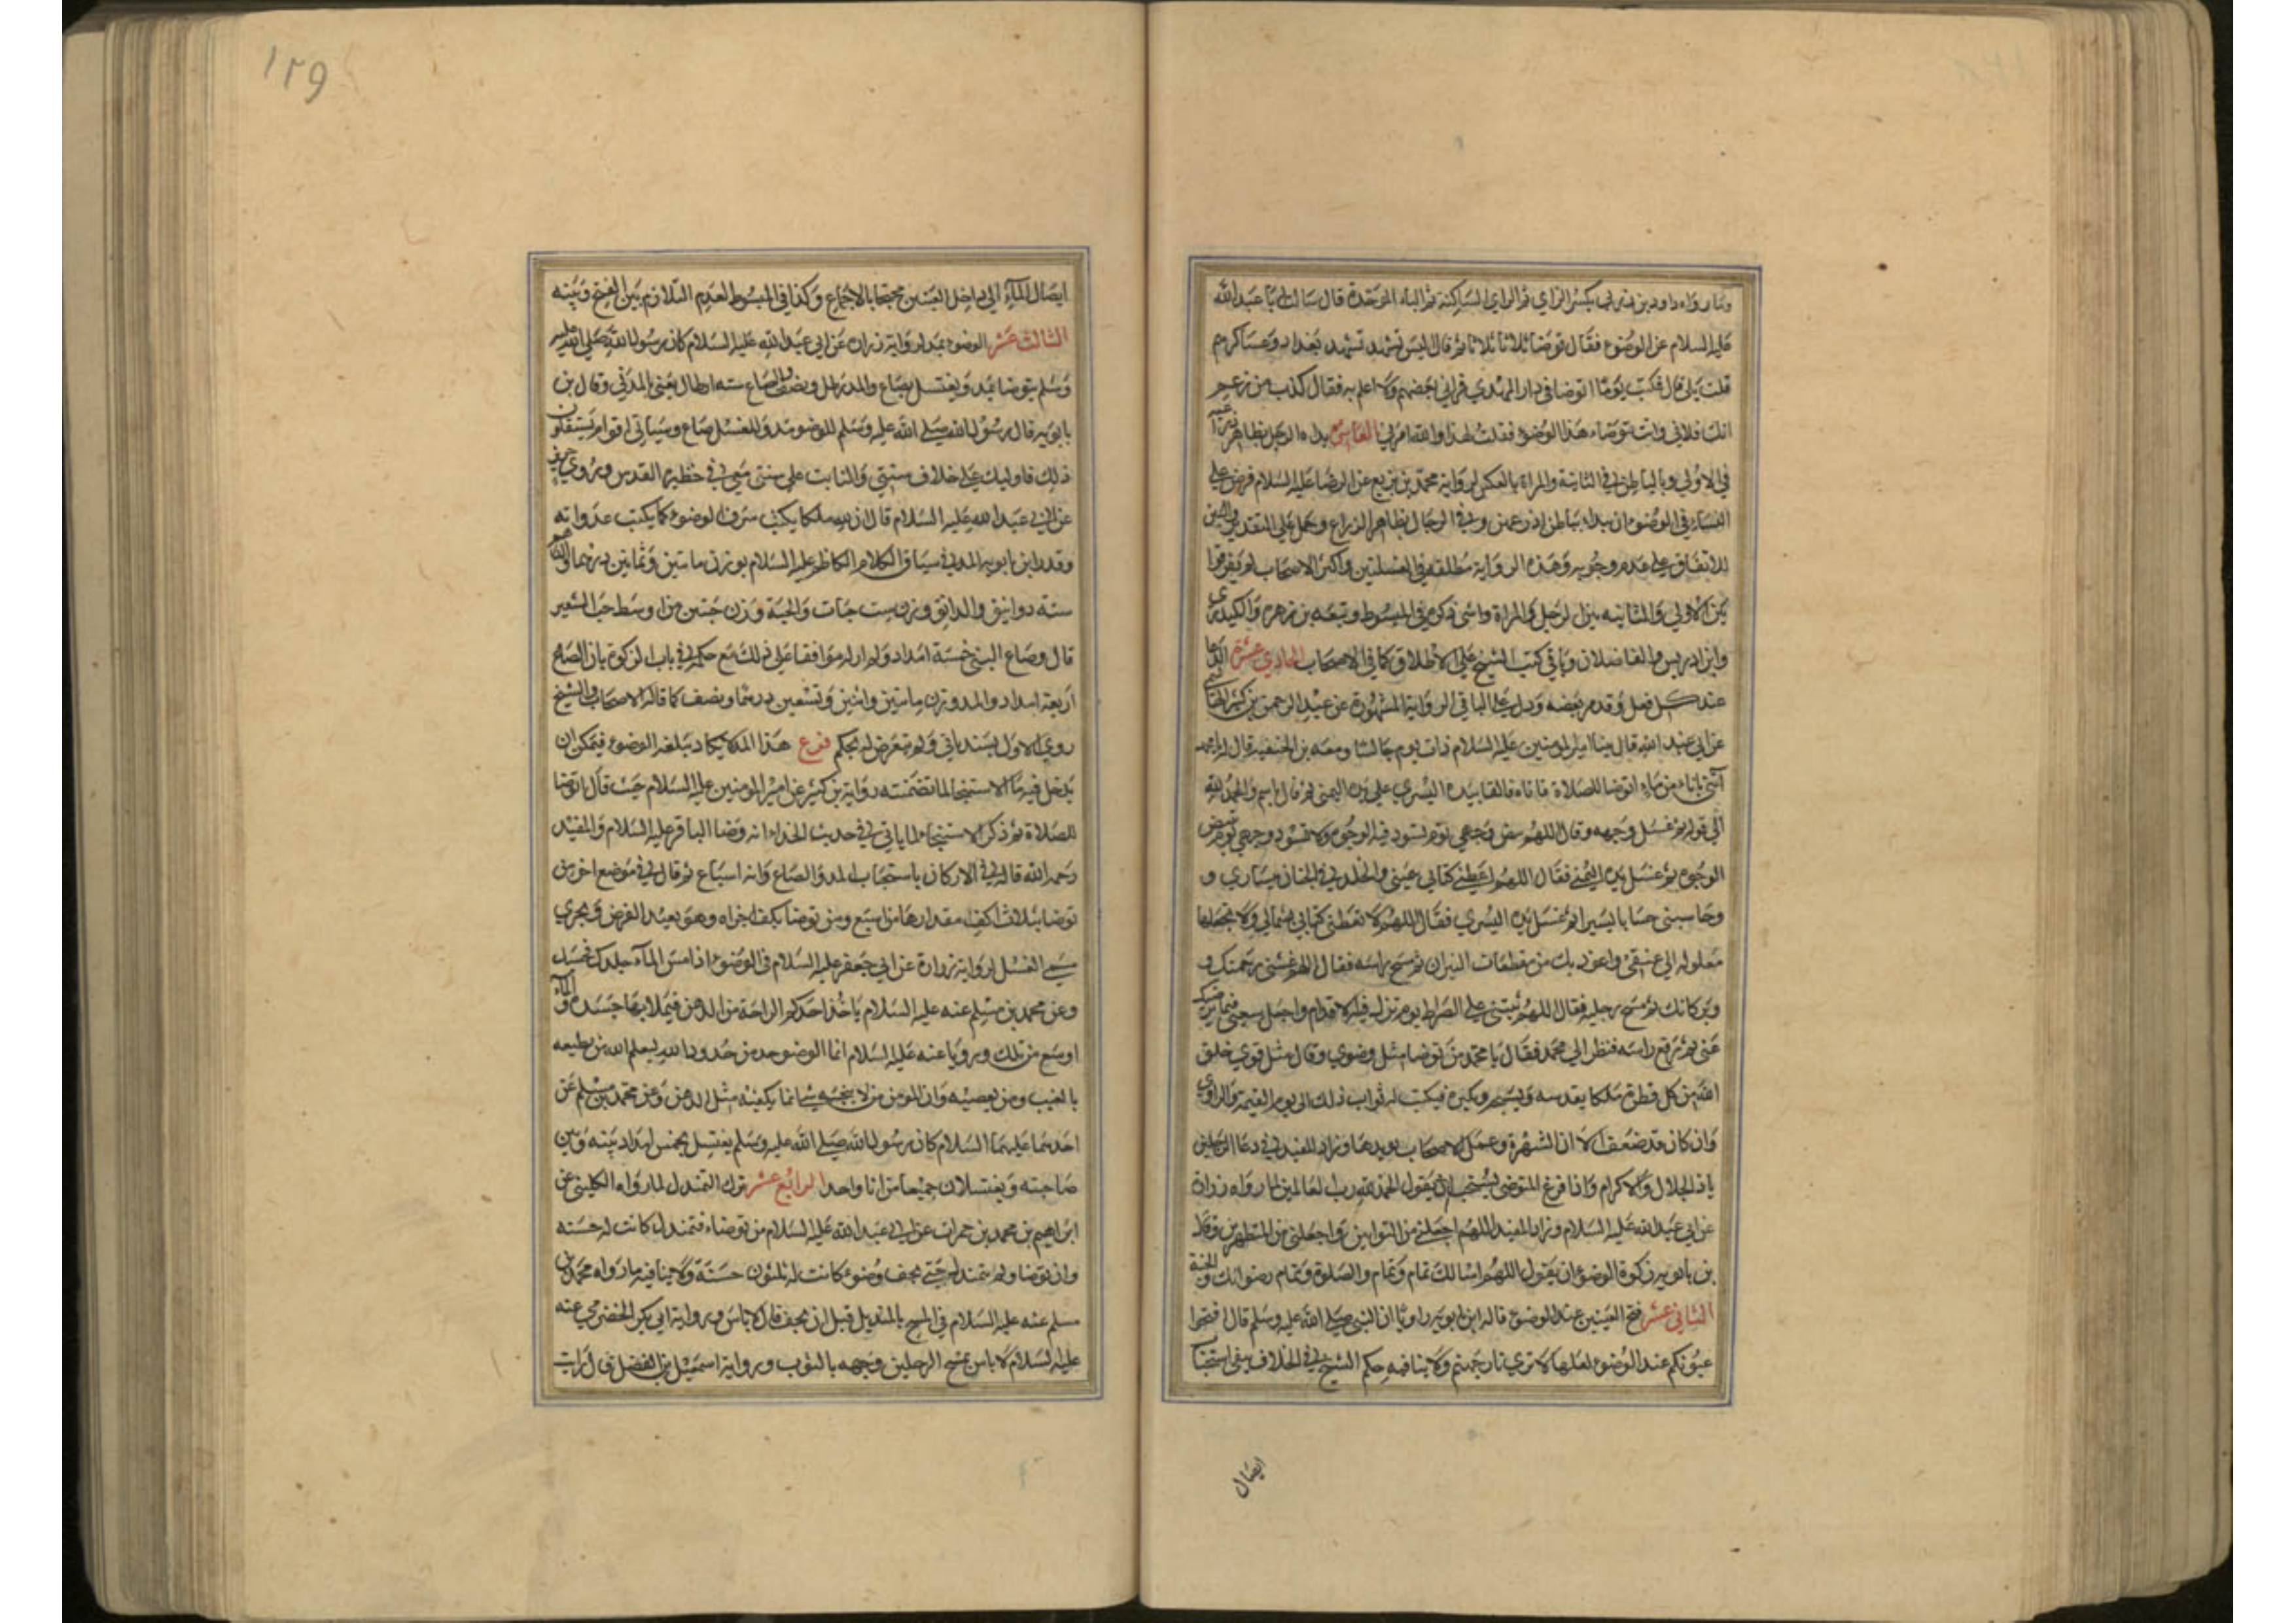 وما رواه داود بن زربي بكسر الزاي ثم الراي الساكنة ثم الباء الموحدة قال سالت ابا عبد الله
عليه السلام عن الوضوء فقال توضا ثلاثا ثلاثا ثم قال اليس تشهد بغداد وعساكرهم
قلت بلى قال فكنت يوما اتوضا في دار المهدي فراني بعضهم ولا اعلم به فقال كذب من زعم
انك فلاني وانت توضاء هذا الوضوء فقلت لهذا والله امرني العاشر بداه الرجل بظاهر ذراعيه
في الاولى وبالباطن في الثانية والمراة بالعكس لرواية محمد بن بزيع عن الرضا عليه السلام فرض على
النساء في الوضوء ان يبداء بباطن اذرعهن وفي الرجال بظاهر الذراع وحمل على التقدير والتبيين
للاتفاق على عدم وجوبه وهذه الرواية مطلقة في الغسلتين واكثر الاصحاب لم يفرقوا
بين الاولى والثانيه بين الرجل والمراة والشيخ في المبسوط وتبعه بن زهره والكيدري
وابن ادريس والفاضلان وباقي كتب الشيخ على الاطلاق كما في الاصحاب الحادي عشر الدعا
عند كل فعل وقدم بعضه ويدل على الباقي الرواية المشهورة عن عبد الرحمن بن كثير الهاشمي
عن ابي عبد الله قال بينا امير المومنين عليه السلام ذات يوم جالسا ومعه بن الحنفيه قال له يا محمد
آتني باناء من ماء اتوضا للصلاة فاتاه فالقا بيده اليسري على يده اليمنى ثم قال بسم والحمد لله
الى قوله ثم غسل وجهه وقال اللهم بيض وجهي يوم تسود فيه الوجوه ولا تسود وجهي يوم تبيض
الوجوه ثم غسل يده اليمنى فقال اللهم اعطني كتابي بيميني والخلد في الجنان بيساري و
وحاسبني حسابا يسيرا ثم غسل يده اليسري فقال اللهم لا تعطني كتابي بشمالي ولا تجعلها
مغلوله الى عنقي واعوذ بك من مقطعات النيران ثم مسح براسه فقال اللهم غشني برحمتك و
وبركاتك ثم مسح رجليه فقال اللهم ثبتني على الصراط يوم تزل فيه الاقدام واجعل سعيي فيما يرضيك
عني ثم رفع راسه فنظر الي محمد فقال يا محمد من توضا مثل وضوي وقال مثل قوي خلق
الله من كل قطرة ملكا يقدسه ويسبحه ويكبره فيكتب له ثواب ذلك الى يوم القيمة والراوي
وان كان قد ضعف الا ان الشهرة وعمل الاصحاب يويدهما وزاد المفيد في دعا الرجلين
يا ذالجلال والاكرام واذا فرغ المتوضي يستحب ان يقول الحمد لله رب العالمين لما رواه زرارة
عن ابي عبد الله عليه السلام وزاد المفيد اللهم اجعلني من التوابين واجعلني من المتطهرين وقال
بن بابويه زكوة الوضوء ان يقول اللهم اسالك تمام وتمام والصلوة وتمام رضوانك والجنة
الثاني عشر فتح العينين عند الوضوء قاله ابن بابويه راويا ان النبي صلى الله عليه وسلم قال افتحوا
عيونكم عند الوضوء لعلها لا تري نار جهنم ولا ينافيه حكم الشيخ في الخلاف بنفي استحباب
ايصال
١٢٩
ايصال الماء الى داخل العينين محتجا بالاجماع وكذا في المبسوط لعدم التلازم بين الفتح وبينه
الثالث عشر الوضوء بمد لرواية زراره عن ابي عبد الله عليه السلام كان رسول الله صلى الله عليه
وسلم يتوضا بمد ويغتسل بصاع والمد رطل ونصف والصاع سته ارطال يعني بالمدني وقال بن
بابويه قال رسول الله صلى الله عليه وسلم للوضو مد وللغسل صاع وسياتي اقوام يستقلون
ذلك فاوليك على خلاف سنتي والثابت على سنتي معي في حظيرة القدس وروي حريز
عن ابي عبد الله عليه السلام قال ان لله ملكا يكتب سرف الوضوء كما يكتب عدوانه
وقدر ابن بابويه المد في سياق الكلام الكاظم عليه السلام بوزن مائتين وثمانين درهما والدرهم
سته دوانيق والدانق وزن ست حبات والحبة وزن حبتين من اوسط حب الشعير
قال وصاع النبي خمسة امداد ولم ار له موافقا على ذلك مع حكمه في باب الزكوة بان الصاع
اربعة امداد والمد وزن مايتين واثنين وتسعين درهما ونصف كما قاله الاصحاب والشيخ
روى الاول بسند ياتي ولم يتعرض له بحكم فرع هذا المد لا يكاد يبلغه الوضوء فيمكن ان
يدخل فيه ماء الاستنجا لما تضمنته رواية بن كثير عن امير المومنين عليه السلام حيث قال اتوضا
للصلاة ثم ذكر الاستنجاء لما ياتي في حديث الحذاء انه وضا الباقر عليه السلام والمفيد
رحمه الله قال في الاركان باستحباب المد والصاع وانه اسباغ ثم قال في موضع اخر من
توضا بثلاث اكف مقدارها مد اسبغ ومن توضا بكف اجزاه وهو بعيد الفرض ويجري
مسمى الغسل لرواية زرارة عن ابي جعفر عليه السلام في الوضوء اذا مس الماء جلدك فحسبك
وعن محمد بن مسلم عنه عليه السلام ياخذ احدكم الراحة من الدهن فيملا بها جسده والماء
اوسع من تلك ورويا عنه عليه السلام انما الوضوء حد من حدود الله ليعلم الله من يطيعه
بالغيب ومن يعصيه وان المومن من لا ينجسه شي انما يكفيه مثل الدهن وعن محمد بن مسلم عن
احدهما عليهما السلام كان رسول الله صلى الله عليه وسلم يغتسل بخمس امداد بينه وبين
صاحبته ويغتسلان جميعا من انا واحد الرابع عشر ترك التمندل لما رواه الكليني عن
ابراهيم بن محمد بن حمران عن ابي عبد الله عليه السلام من توضاء فتمندل كانت له حسنه
وان توضا ولم يتمندل حتى يجف وضوء كانت له ثلثون حسنة ولا ينافيه ما رواه محمد بن
مسلم عنه عليه السلام في المسح بالمنديل قبل ان يجف قال لا باس ورواية ابي بكر الحضرمي عنه
عليه السلام لا باس بمسح الرجلين وجهه بالثوب ورواية اسمعيل بن الفضل قال رايت